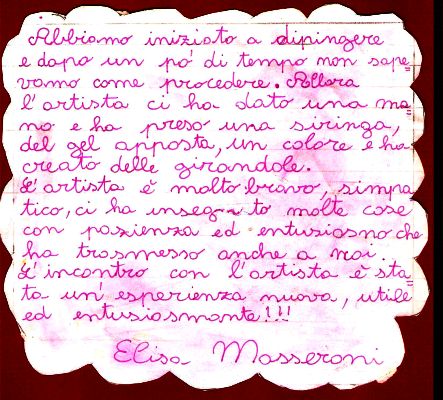 Abbiamo iniziato a dipingere
e dapo un pó di tempo non sape=
vamo come procedere. Allora
l'artista ci ha dato una ma=
no e ha preso una siringa,
del gel apposta, un colore e ha
creato delle girandole.
L'artista é molto bravo, simpa
tico, ci ha insegnato molte cose
con pazienza ed entusiasmo che
ha trasmesso anche a noi.
L'incontro con l'artista é sta=
ta un'esperienza nuova, utile
ed entusiosmante!!!
Elisa Masseroni